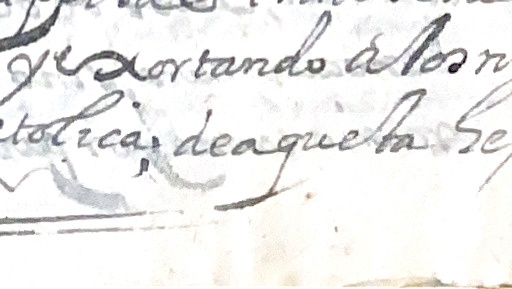 y exortando â los n
tolica; de aquella Se